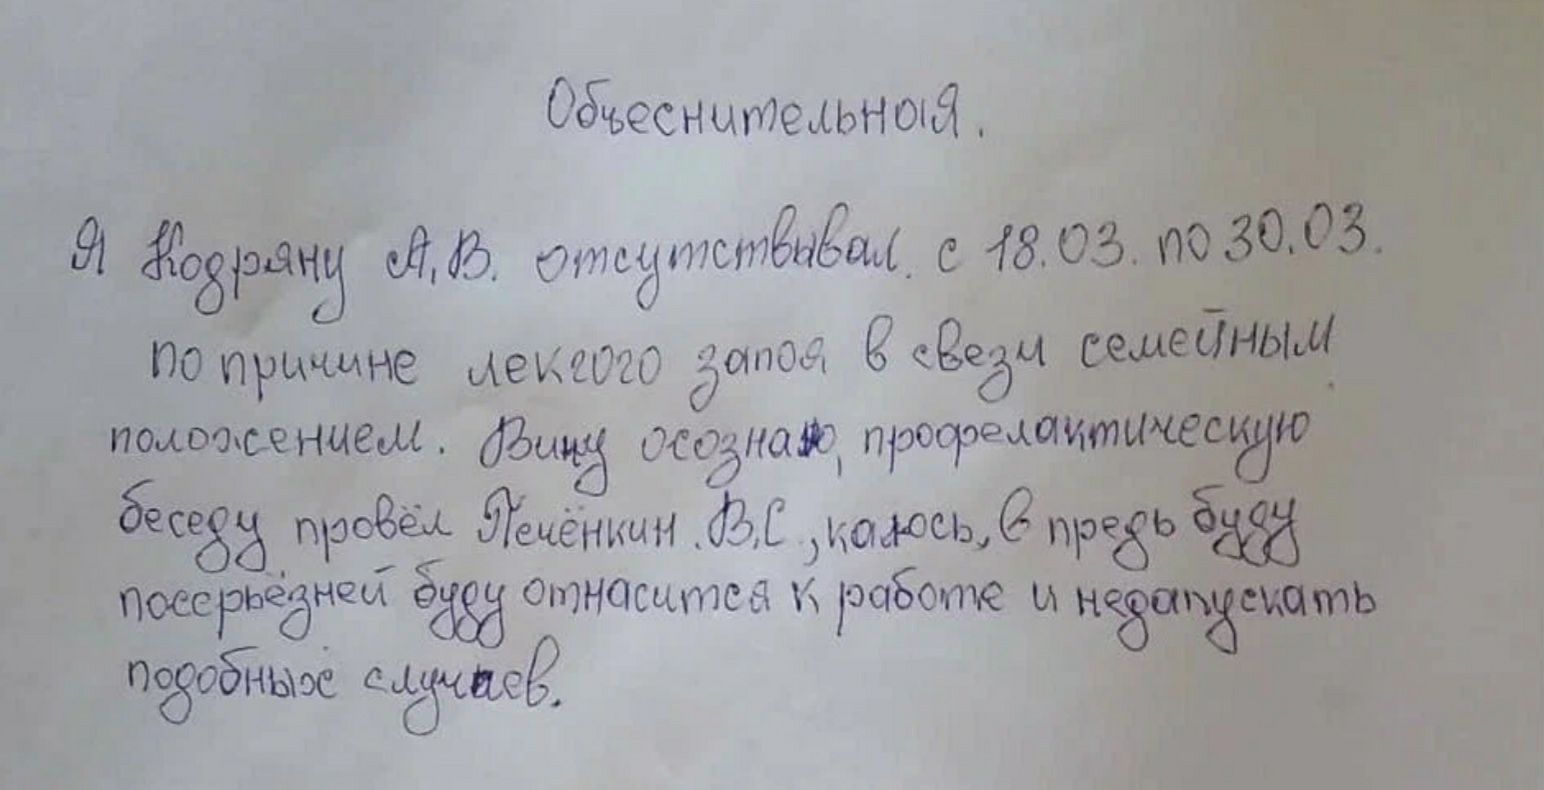 Объеснительная.
Я Кодряну А.В. отсутствывал. с 18.03. по 30.03.
по причине лекгого запоя в свези семейным
положением. Вину осознаю, профелактическую
беседу провёл Печёнкин.В.С., каюсь, в предь буду
поссрьёзней буду отнасится к работе и недапускать
подобных случаев.